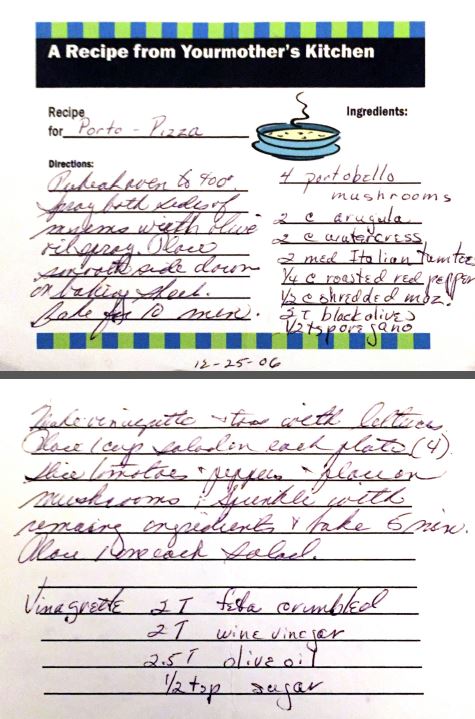 A Recipe from Yourmother's Kitchen
Recipe
for Porto - Pizza
Directions:
Preheat oven to 400°.
Spray both sides of
mushrms with olive
oil spray. Place
smooth side down
on baking sheet.
Bake for 10 min.
Ingredients:
4 portobello
mushrooms
2 c arugula
2 c watercress
2 med Italian tomtoz
1/4 c roasted red pepper
1/2 c shredded moz.
2T black olives
1/2 tsp oregano
12-25-06
Make vinagrette & toss with lettuces
Place 1 cup salad on each plate (4).
Slice tomatoes & peppers & place on
mushrooms; Sprinkle with
remaing ingredients & bake 5 min.
Place 1 on each salad.
Vinagrette 2 T feta crumbled
2 T wine vinegar
2.5 T olive oil
1/2 tsp sugar